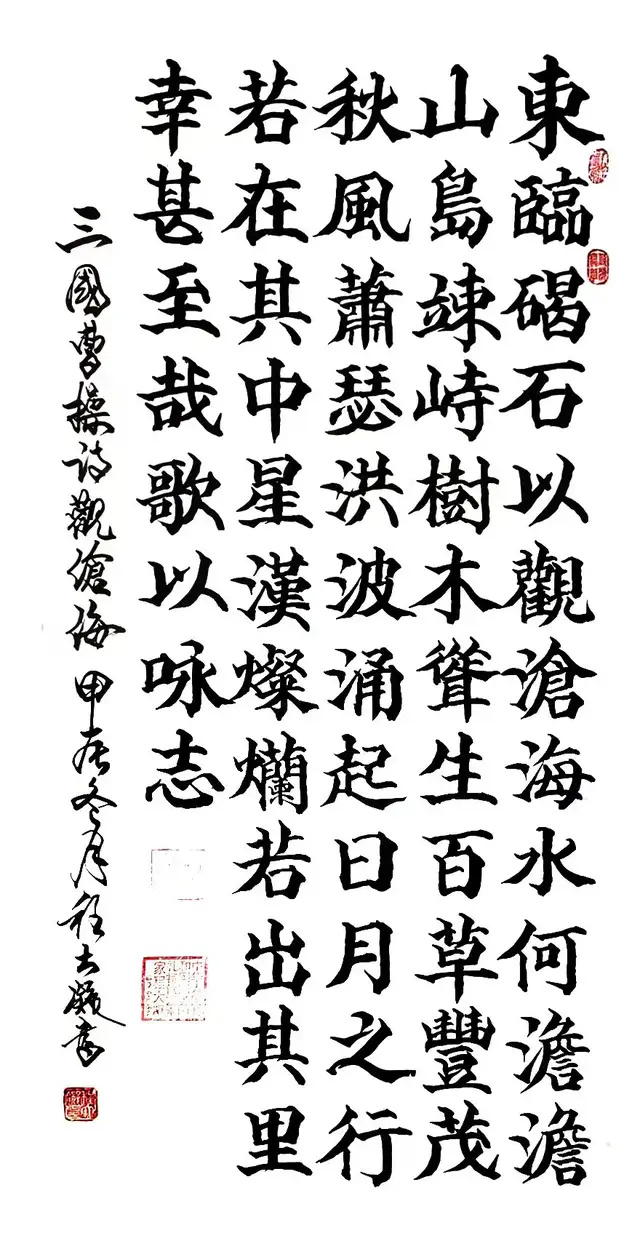 東臨碣石以觀滄海水何澹澹
山島竦峙樹木聳生百草豐茂
秋風蕭瑟洪波涌起日月之行
若在其中星漢燦爛若出其里
幸甚至哉歌以咏志
三國曹操诗觀滄海甲辰冬月程書